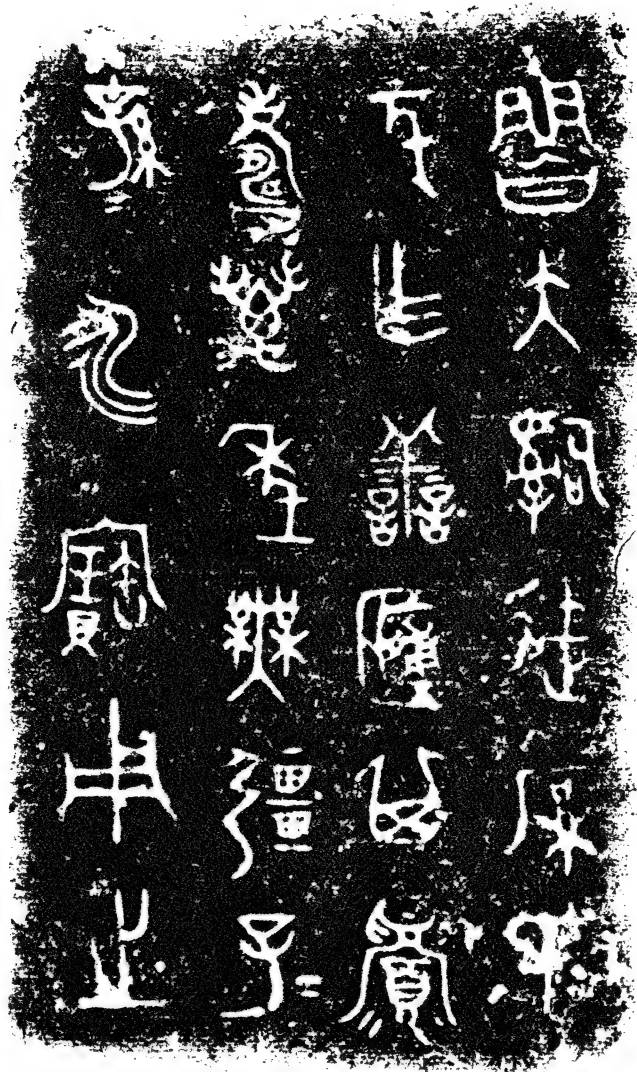 魯大𤔲徒厚氏
元乍譱其眉
壽萬年無疆子=
孫=永寶用之